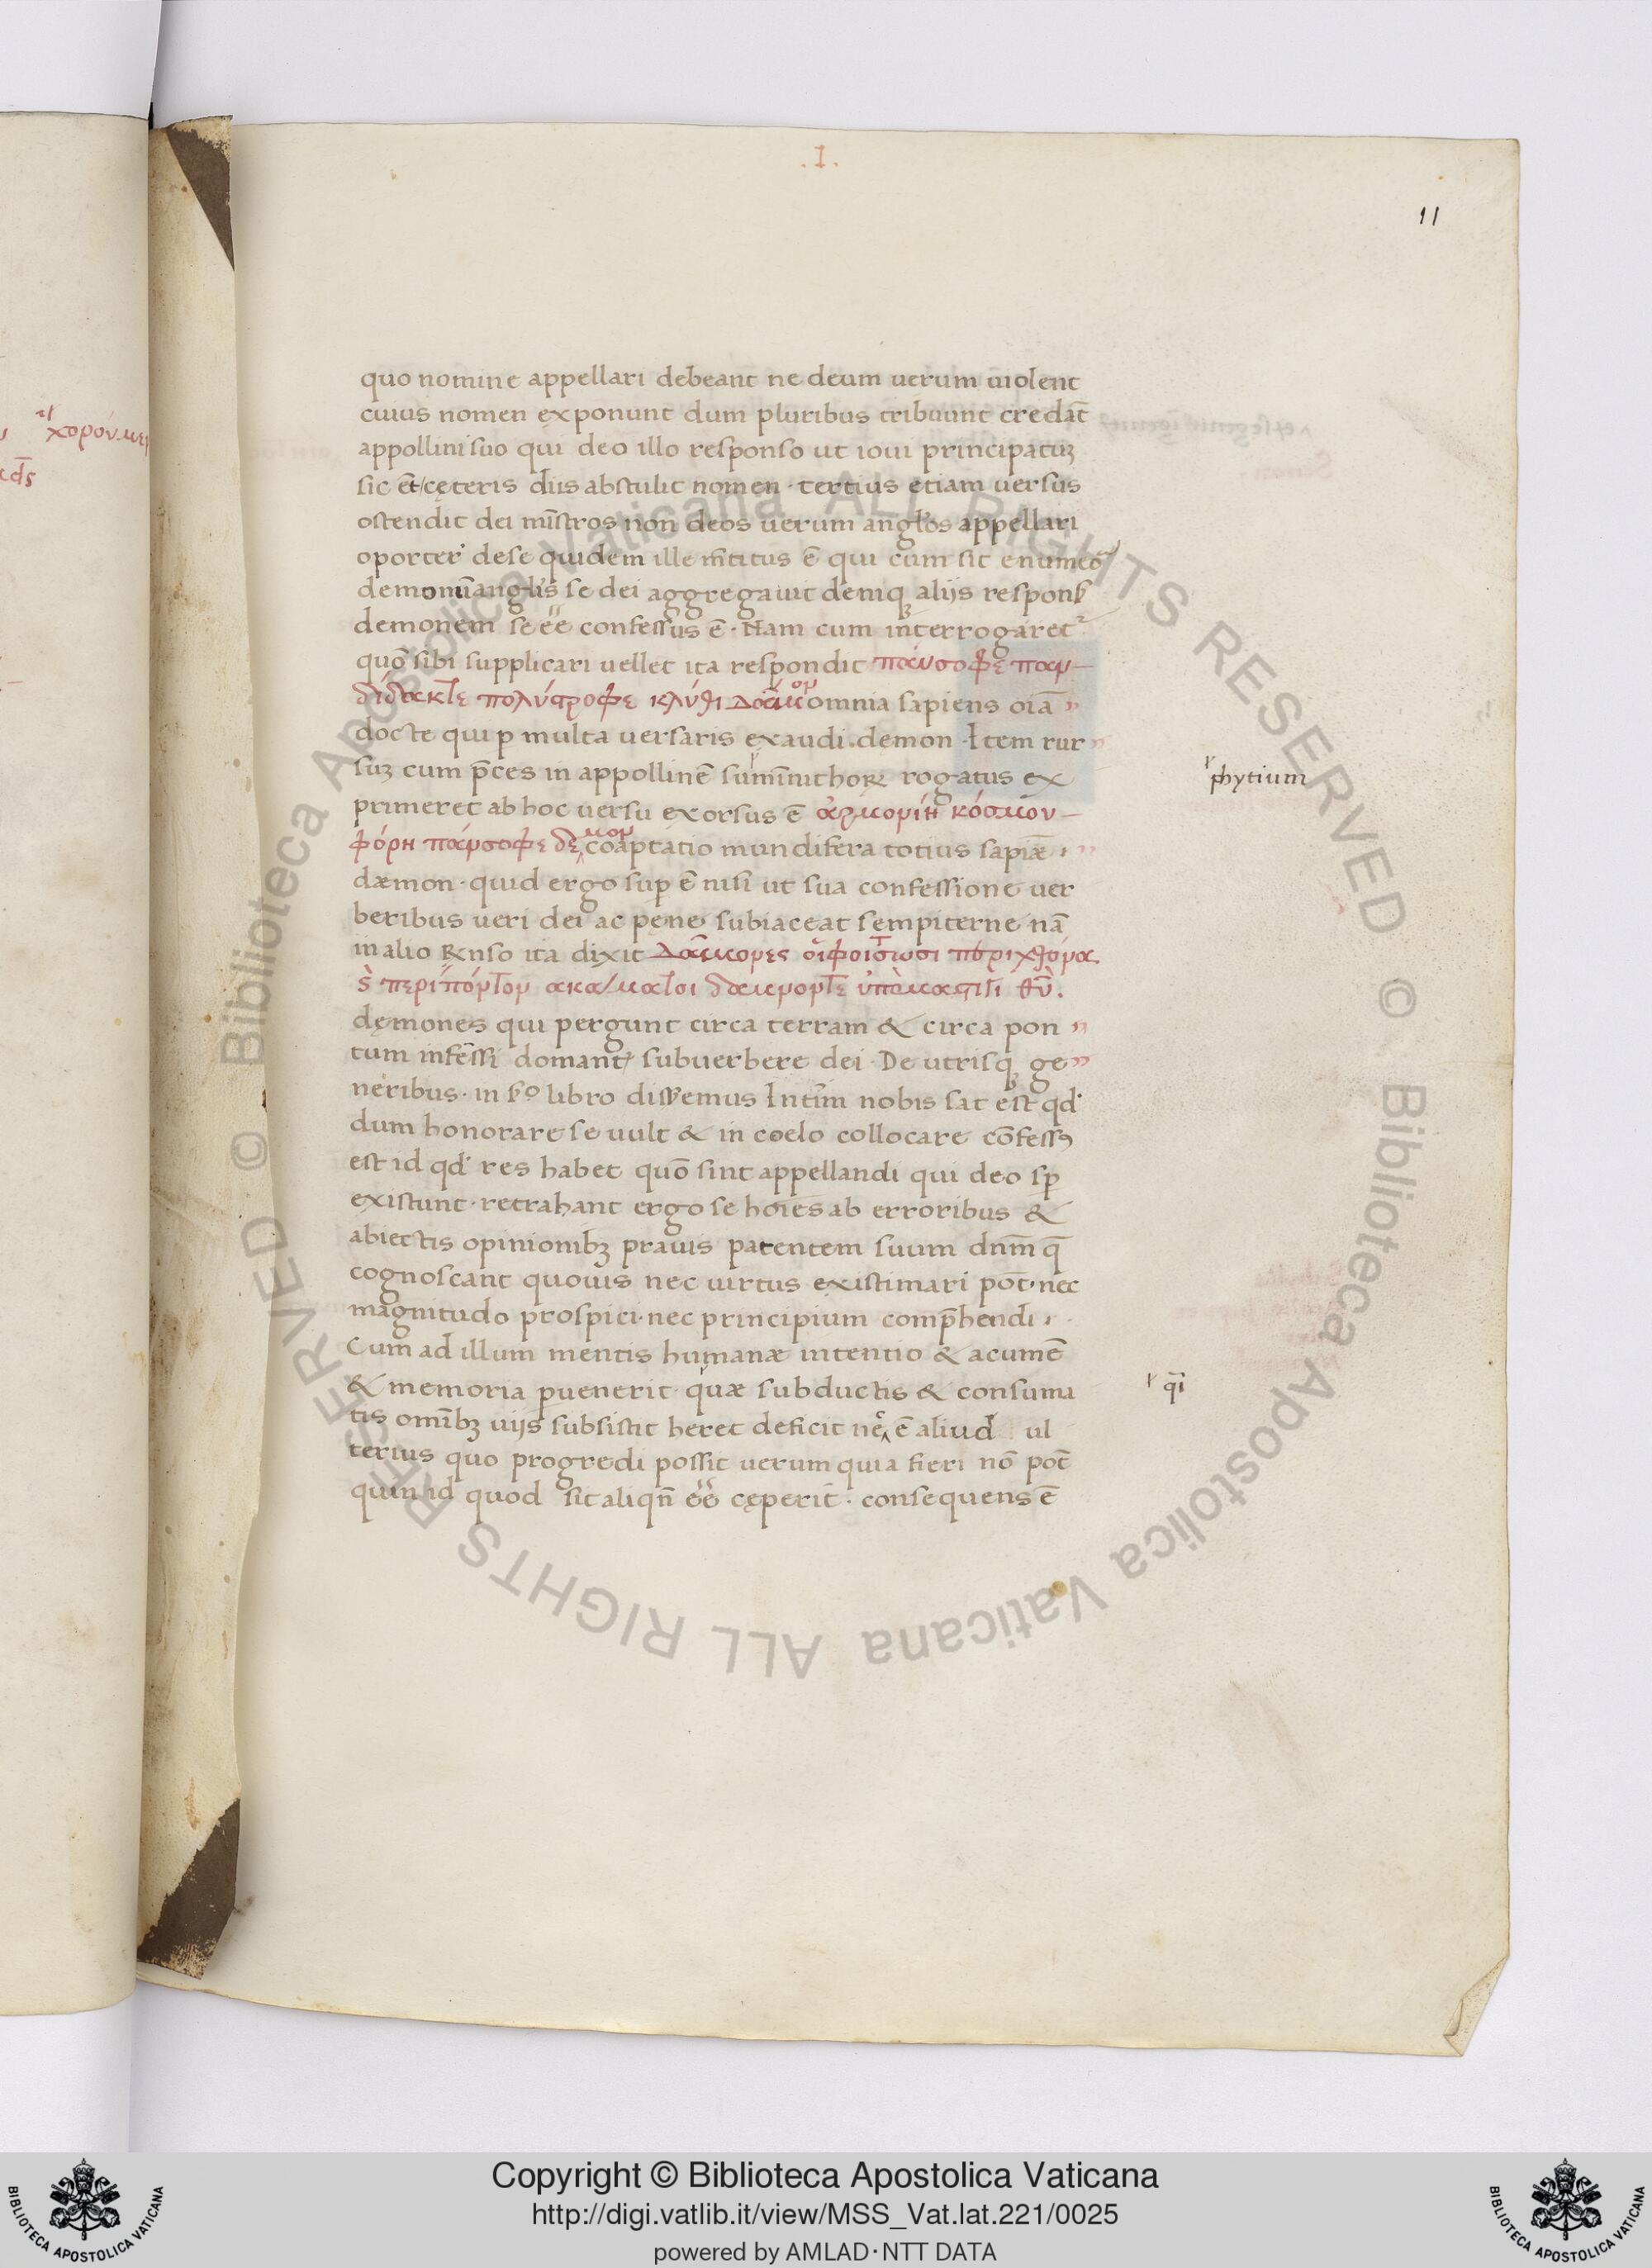 .I.
11
quo nomine appellari debeant ne deum uerum uiolent
cuius nomen exponunt dum pluribus tribuunt credāt
appollini suo qui deo illo responso ut ioui principatuȝ
sic et cęteris diis abstulit nomen · tertius etiam uersus
ostendit dei mīstros non deos uerum angłos appellari
oportere de se quidem ille mētitus ē qui cum sit e numero
demonū anglis se dei aggregauit deniq; alijs respons
demonem se ēē confessus ē · Nam cum interrogaret
quō sibi supplicari uellet ita respondit πάνσοφε παν–
δίδακτε πολύστροφε κλῦθι Δαῖμον omnia sapiens oīa
docte qui p multa uersaris exaudi demon · Item rur
suȝ cum p̄ces in appollinē rogatus ex
phytium
primeret ab hoc uersu exorsus ē ἁρμονίη κόσμου–
φόρη πάνσοφε δεμον coaptatio mundifera totius sapiæ
dæmon · quid ergo sup ē nisi ut sua confessione uer
beribus ueri dei ac pene subiaceat sempiterne nā
in alio Rnso ita dixit Δαίμονες οἳ φοιτῶσι περὶ χθόνα
περὶ πόντον ακαματοι ὑπὸ μάστιγι θῦ.
dęmones qui pergunt circa terram & circa pon
tum infēssi domant subuerbere dei · De utrisq; ge
neribus · in libro disseremus Intīm nobis sat est qd
dum honorare se uult & in coelo collocare cōfessꝰ
est id qd res habet quō sint appellandi qui deo sp
existunt · retrahant ergo se hoīes ab erroribus &
abiectis opinionibȝ prauis parentem suum dnm̄ q̄
cognoscant quouis nec uirtus existimari pōt · nec
magnitudo prospici · nec principium comp̄hendi
Cum ad illum mentis humanæ intentio & acumē
& memoria puenerit quæ subductis & consuma
q̄i
tis omībȝ uijs subsistit heret deficit ne ē aliud ul
terius quo progredi possit uerum quia fieri nō pōt
quin id quod sit aliqn̄ ēē cęperit · consequens ē
Copyright © Biblioteca Apostolica Vaticana
http://digi.vatlib.it/view/MSS_Vat.lat.221/0025
powered by AMLAD·NTT DATA